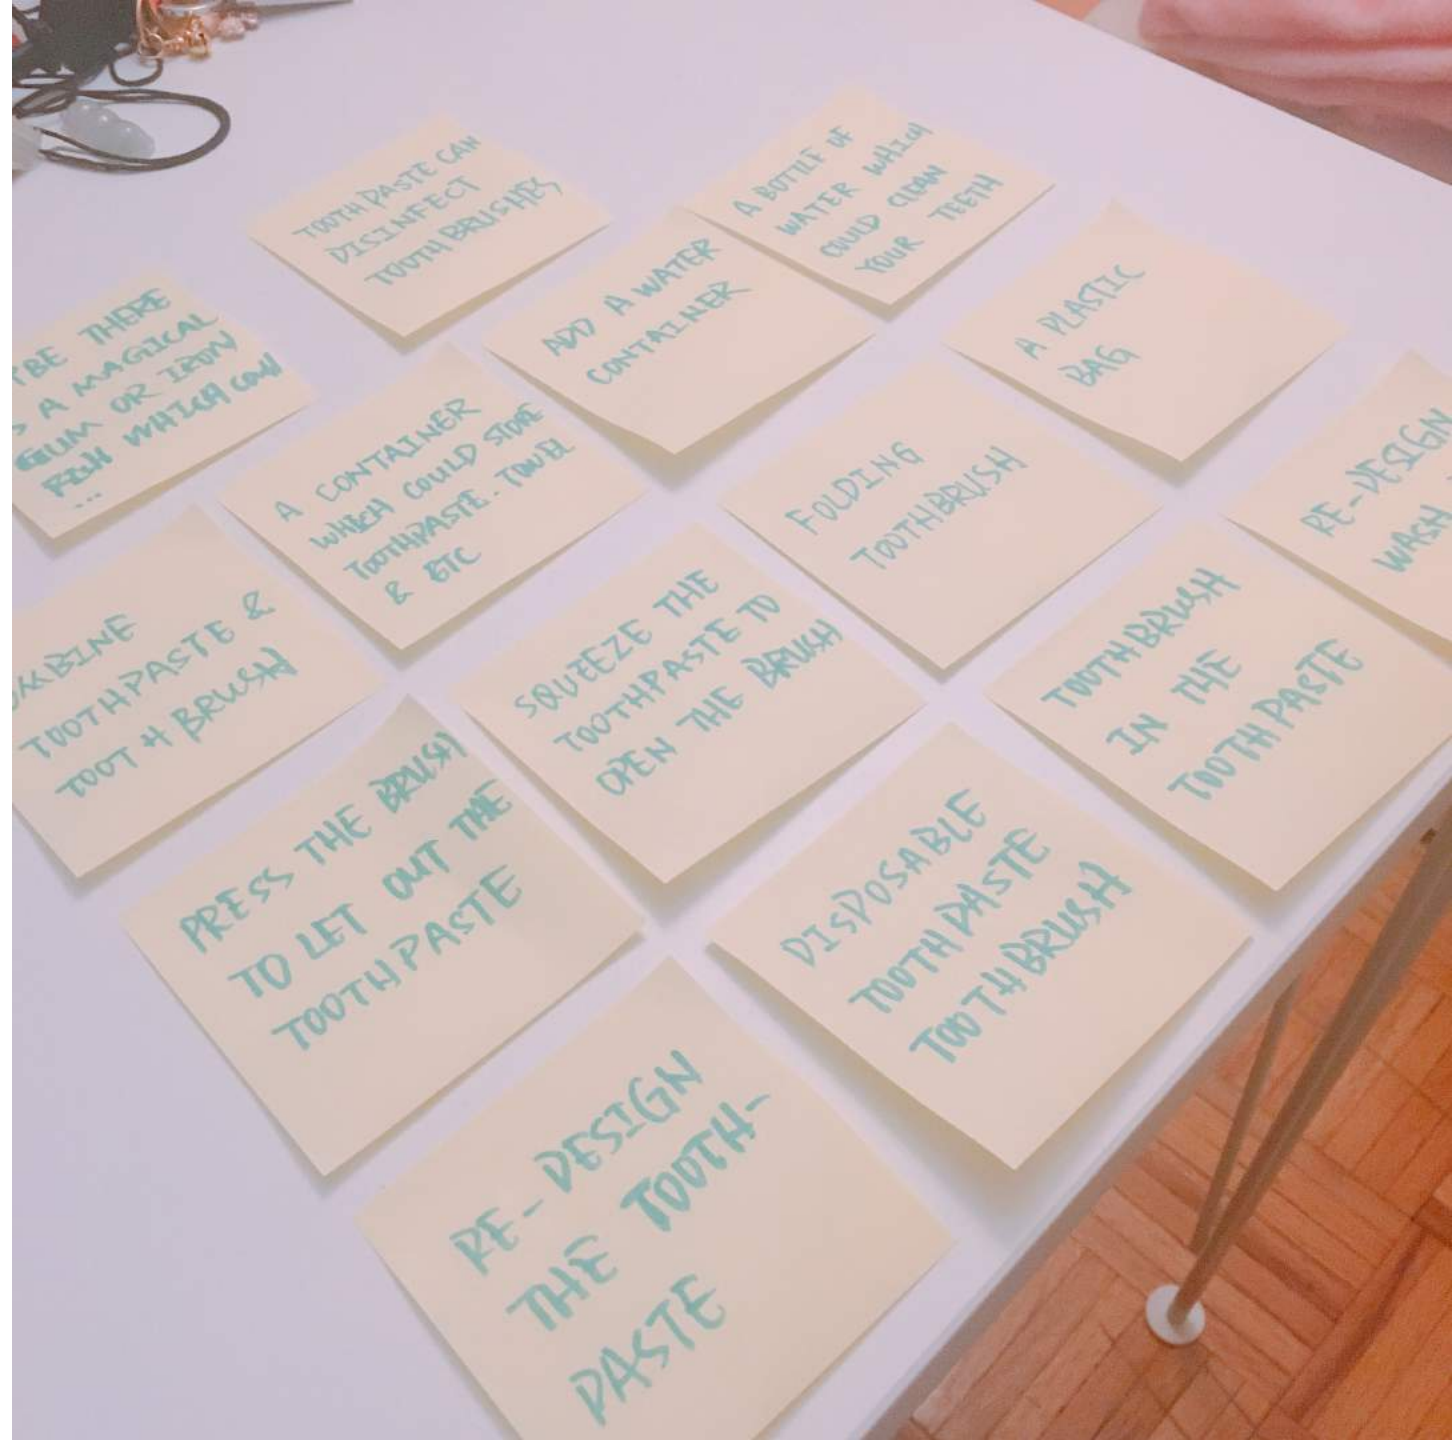 TOOTHPASTE CAN
DISINFECT
TOOTHBRUSHES
A BOTTLE OF
WATER WHICH
COULD CLEAN
YOUR TEETH
ADD A WATER
CONTAINER
A PLASTIC
BAG
BE THERE
A MAGICAL
GUM OR IRON
WHICH COULD
...
A CONTAINER
WHICH COULD STORE
TOOTHPASTE. TOWEL
& ETC
FOLDING
TOOTHBRUSH
RE-DESIGN
WASH
TOOTHPASTE &
TOOTHBRUSH
SQUEEZE THE
TOOTHPASTE TO
OPEN THE BRUSH
TOOTHBRUSH
IN THE
TOOTHPASTE
PRESS THE BRUSH
TO LET OUT THE
TOOTHPASTE
DISPOSABLE
TOOTHPASTE
TOOTHBRUSH
RE-DESIGN
THE TOOTH-
PASTE